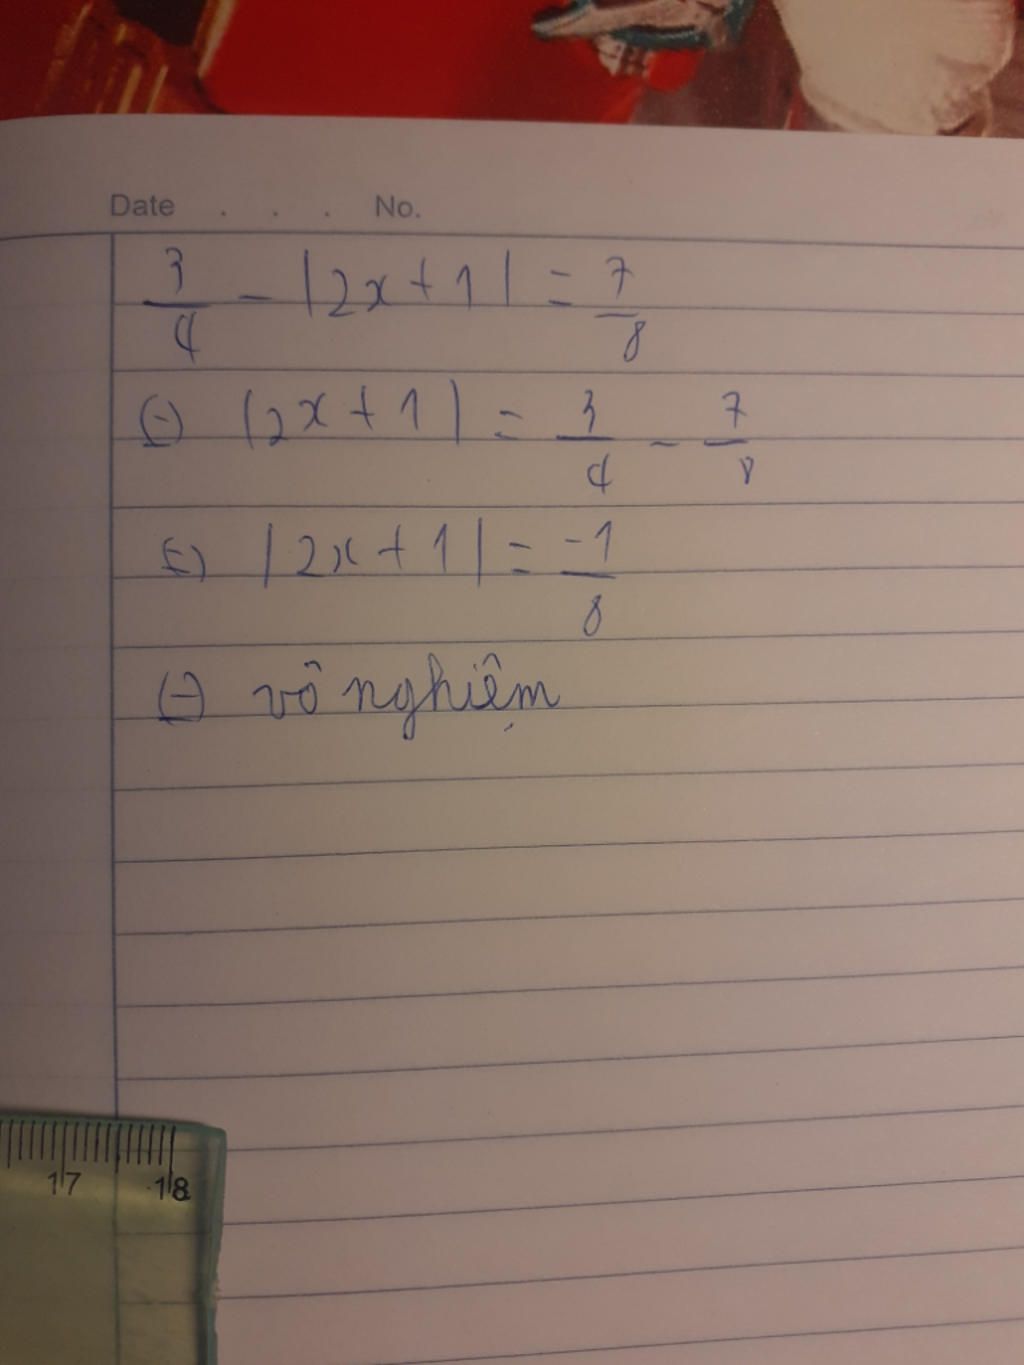 Date . . . No.
3/4 - |2x + 1| = 7/8
⇔ |2x + 1| = 3/4 - 7/8
⇔ |2x + 1| = -1/8
⇔ vô nghiệm
17 18